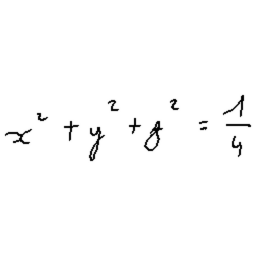 x² + y² + z² = 1/4